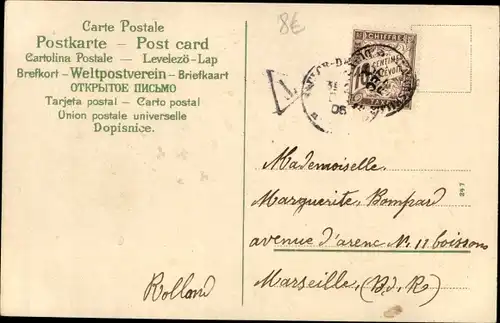 Carte Postale
Postkarte — Post card
Cartolina Postale — Levelezö-Lap
Brefkort - Weltpostverein - Briefkaart
ОТКРЫТОЕ ПИСЬМО
Tarjeta postal — Carto postal
Union postale universelle
Dopisnice.
8€
T
CHIFFRE
TAXE
06
Mademoiselle
Marguerite Bompard
avenue d'arenc N. 11 boissons
Marseille, (B.d.R)
Rolland
847